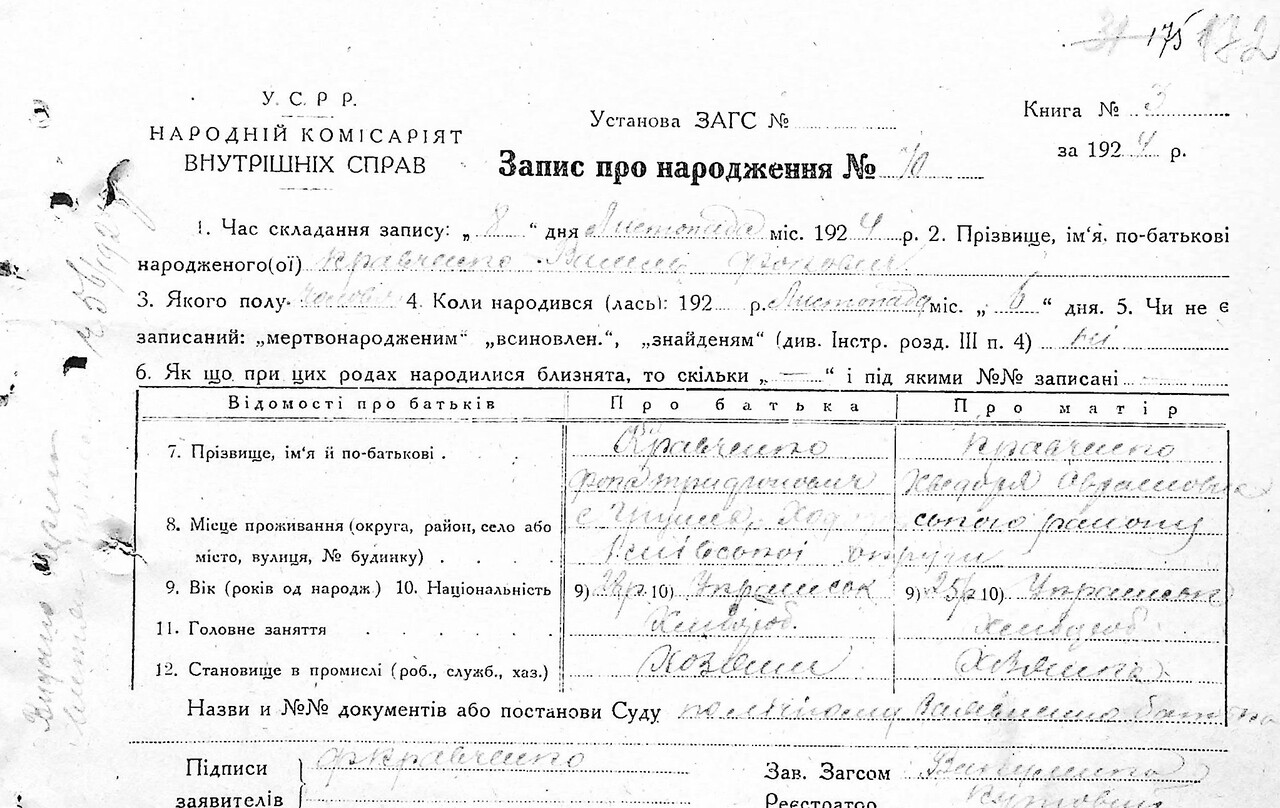 175 172
У. С. Р. Р.
НАРОДНІЙ КОМІСАРІЯТ
ВНУТРІШНІХ СПРАВ
Установа ЗАГС №
Книга № 3
за 1924 р.
Запис про народження № 70
1. Час складання запису: „ 8 “ дня Листопада міс. 1924 р. 2. Прізвище, ім‘я. по-батькові
народженого(ої) Кравченко
3. Якого полу 4. Коли народився (лась): 192 р. Листопада міс. „ 6 “ дня. 5. Чи не є
записаний: „мертвонародженим“ „всиновлен.“, „знайденям“ (див. Інстр. розд. III п. 4) ні
6. Як що при цих родах народилися близнята, то скільки „ — “ і під якими №№ записані
Відомості про батьків Про батька Про матір
7. Прізвище, ім‘я й по-батькові . Кравченко Кравченко
8. Місце проживання (округа, район, село або ського району
місто, вулиця, № будинку) . . . . Київської округи
9. Вік (років од народж) 10. Національність 9) 28р 10) Українськ 9) 25р 10) Українськ
11. Головне заняття . . . . . Хлібороб. Хлібороб.
12. Становище в промислі (роб., служб., хаз.) Хозяин
Назви и №№ документів або постанови Суду по
Підписи
заявителів
ФКравченко
Зав. Загсом
Реєстратор